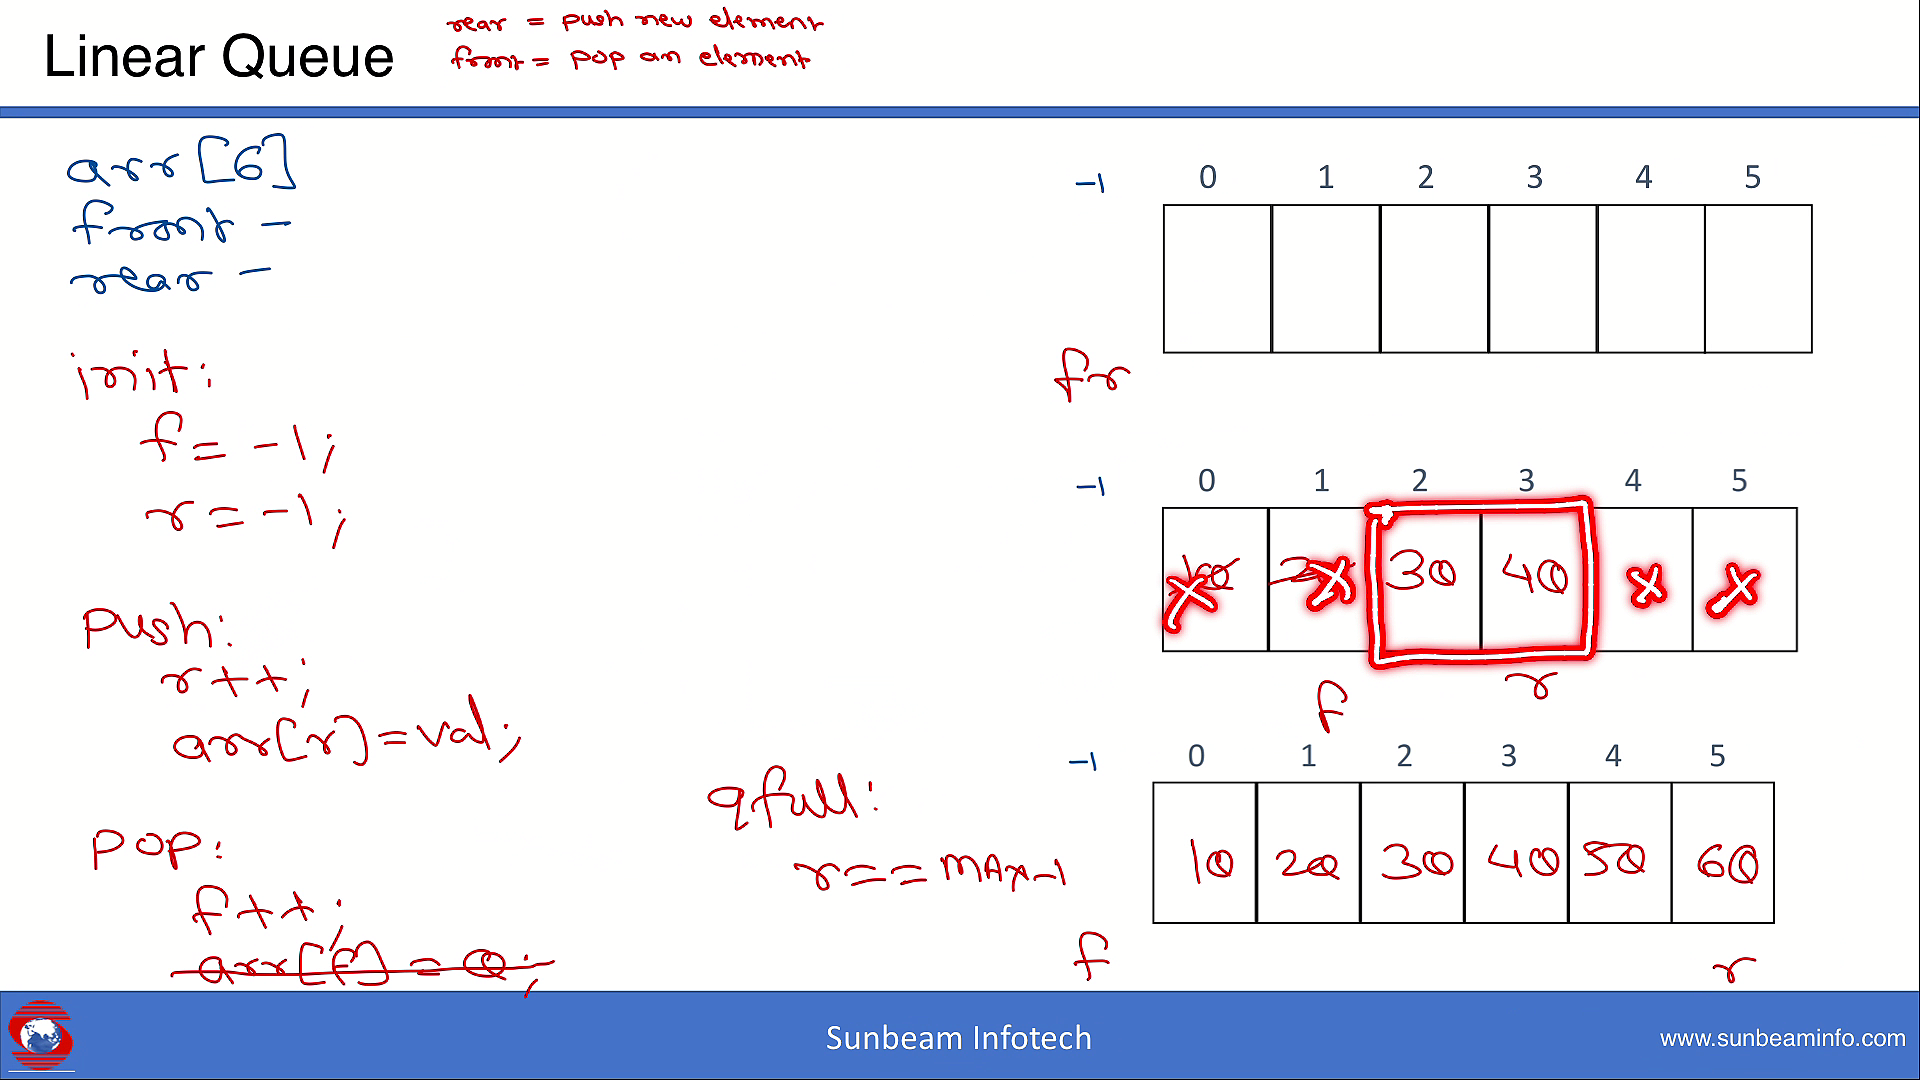 Linear Queue
rear = push new element
front = pop an element
arr[6]
front -
rear -
init:
f = -1;
r = -1;
push:
r++;
arr[r] = val;
pop:
f++;
arr[f] = 0;
qfull:
r == MAX-1
-1 0 1 2 3 4 5
fr
-1 0 1 2 3 4 5
10 30 40 x x
f r
-1 0 1 2 3 4 5
10 20 30 40 50 60
f r
Sunbeam Infotech
www.sunbeaminfo.com